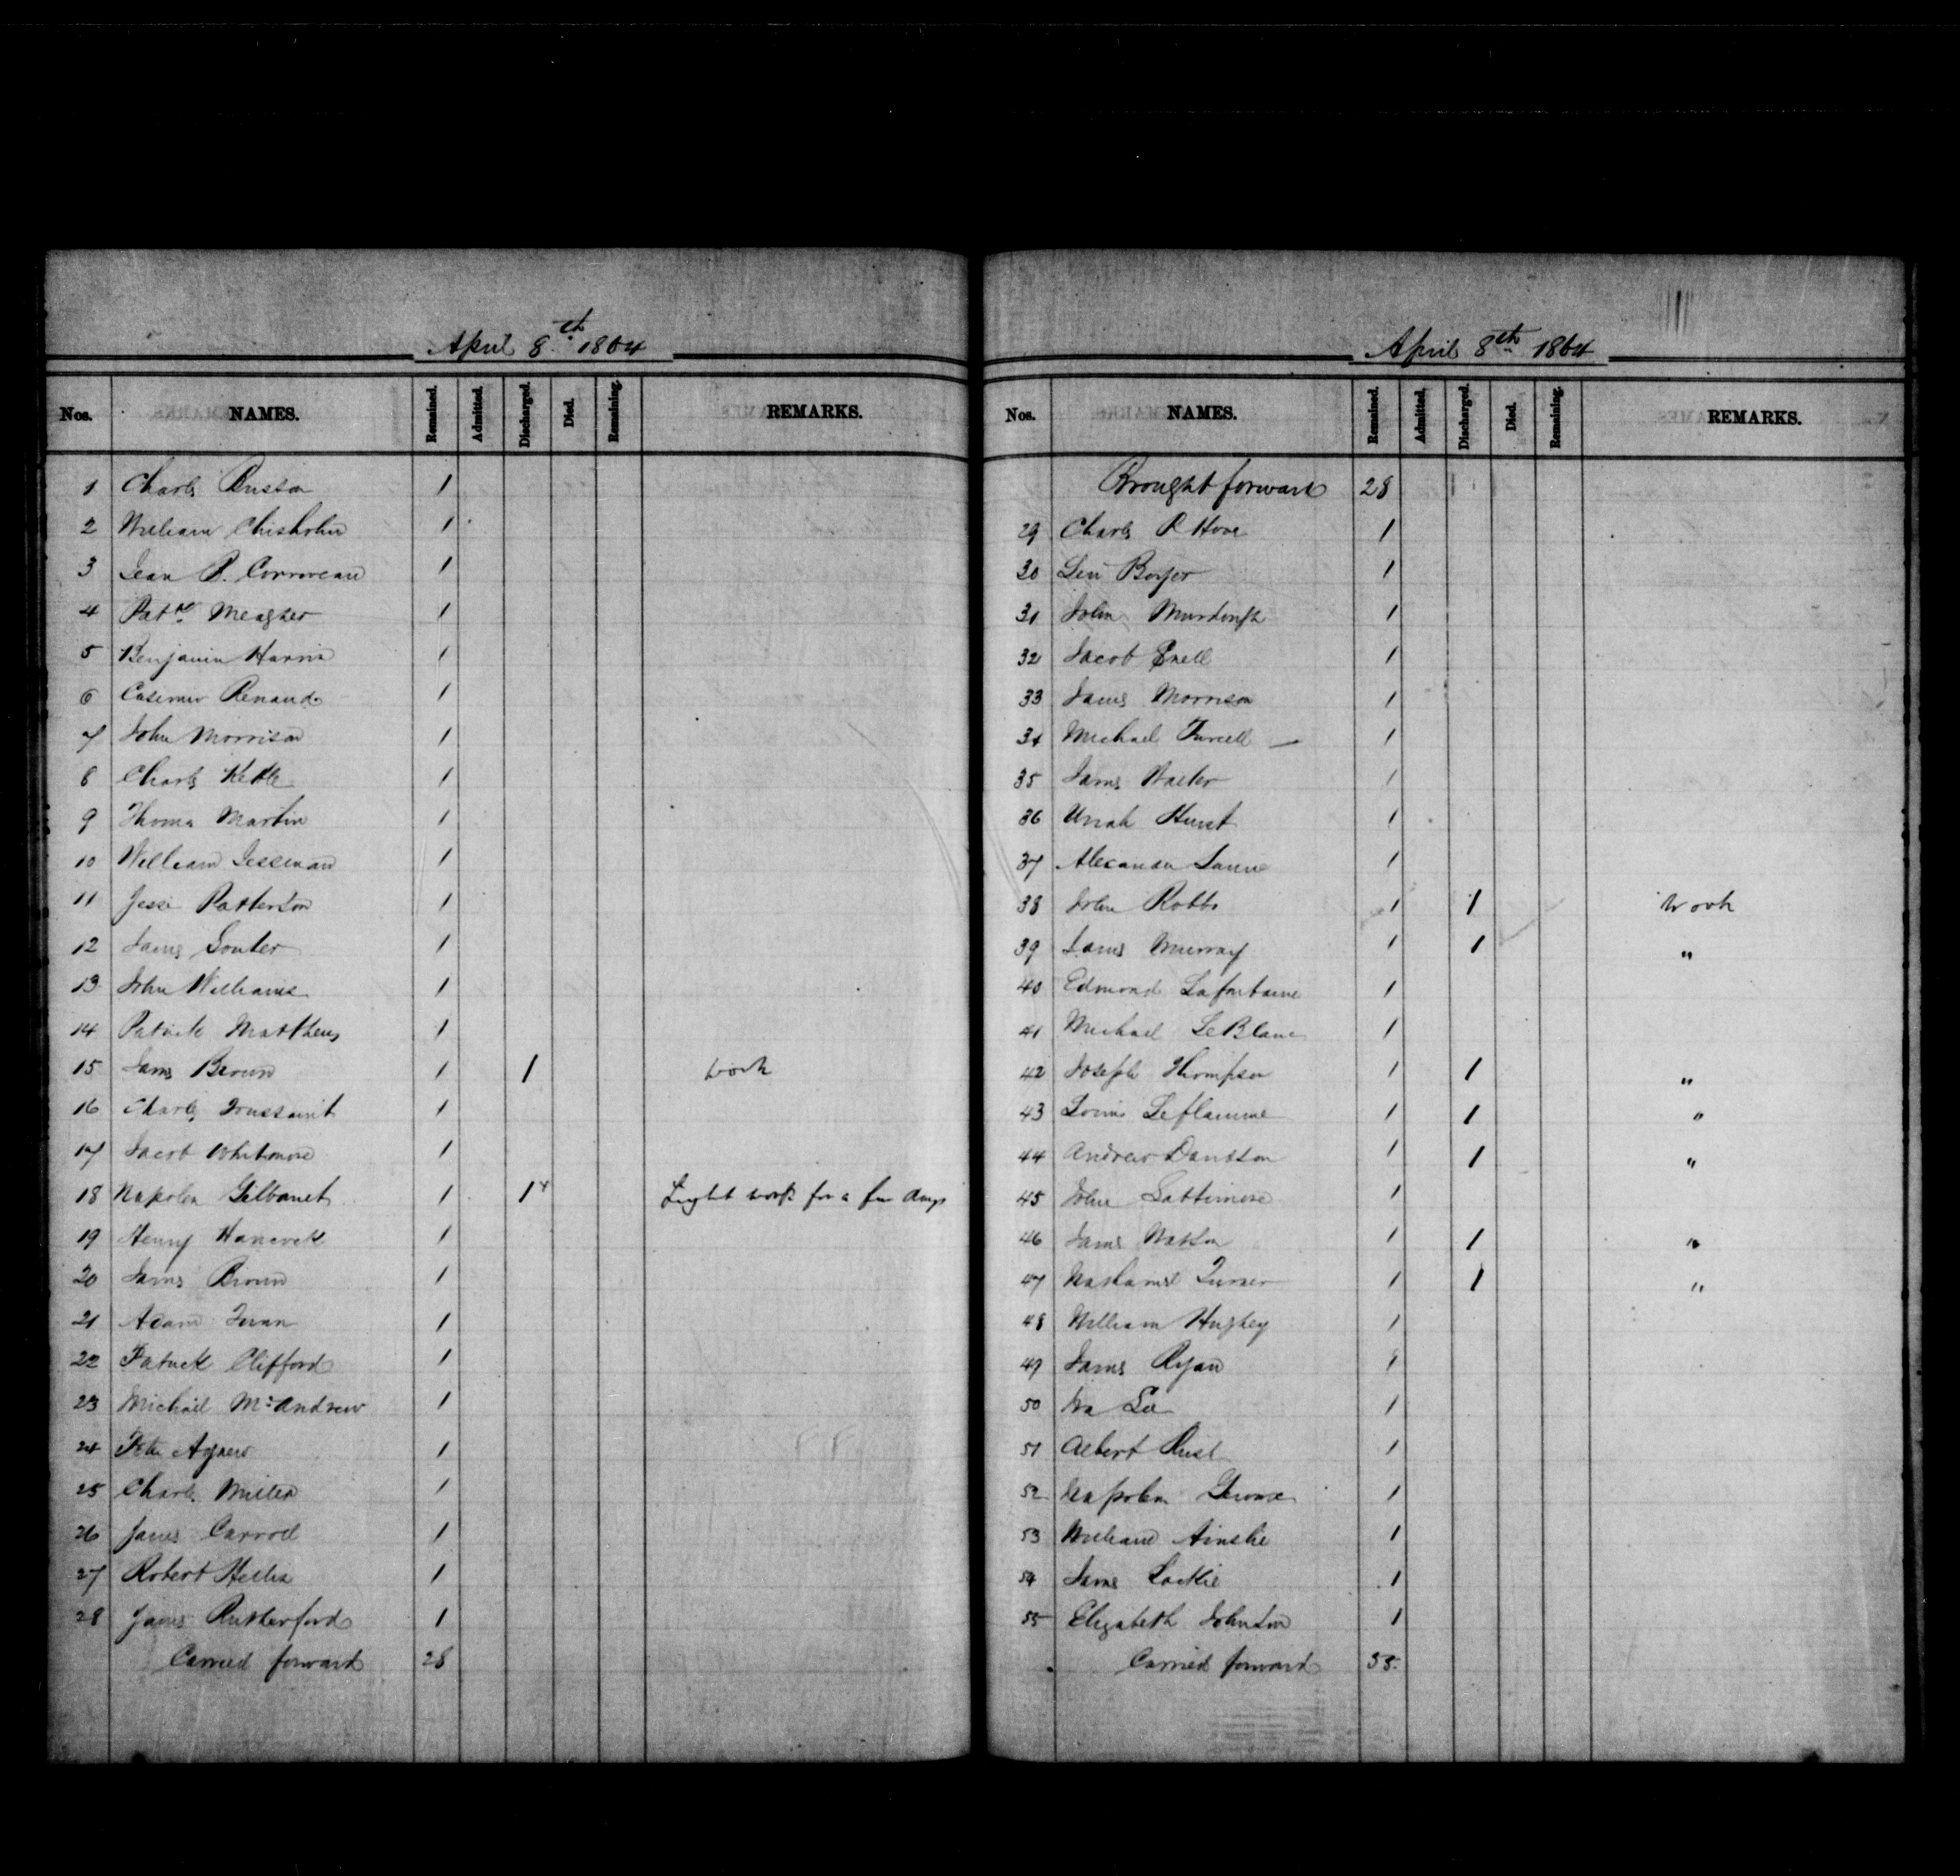 April 8th 1864
Nos. NAMES. Remained. Admitted. Discharged. Died. Remaining. REMARKS.
1 Charls Ruston 1
2 William Chisholm 1
3 Jean P. Corriveau 1
4 Patk Meagher 1
5 Benjamin Harris 1
6 Casemir Renaud 1
7 John Morrison 1
8 Charls Kettle 1
9 Thoma Martin 1
10 William Jesseman 1
11 Jessi Patterson 1
12 James Souter 1
13 John Williams 1
14 Patrick Matthews 1
15 Jams Brown 1 1 work
16 Charls Toussaint 1
17 Jacob Whitmore 1
18 Napolen 1 1x Light work for a few days
19 Henry Hancock 1
20 Jams Brown 1
21 Adam 1
22 Patrick Clifford 1
23 Michail McAndrew 1
24 Peter Agnew 1
25 Charls Miller 1
26 James Carroll 1
27 Robert 1
28 James Rutherford 1
Carried forward 28
April 8th 1864
Nos. NAMES. Remained. Admitted. Discharged. Died. Remaining. REMARKS.
Brought forward 28
29 Charls R Hover 1
30 Levi Boyer 1
31 John Murdough 1
32 Jacob Snell 1
33 James Morrison 1
34 Michael Purcell — 1
35 Jams Walter 1
36 Uriah Hurst 1
37 Alexander 1
38 John Robbs 1 1 work
39 James Murray 1 1 "
40 Edmond Lafontaine 1
41 Michael LeBlanc 1
42 Joseph Thompson 1 1 "
43 Louis Leflamme 1 1 "
44 Andrew Davidson 1 1 "
45 John Lattimore 1
46 James Watson 1 1 "
47 Nathaniel Turner 1 1 "
48 William Hughey 1
49 James Ryan 1
50 Ira Lee 1
51 Albert Rust 1
52 Napolen Giroux 1
53 William Ainslie 1
54 Jams Lackie 1
55 Elizabeth Johnston 1
Carried forward 55.